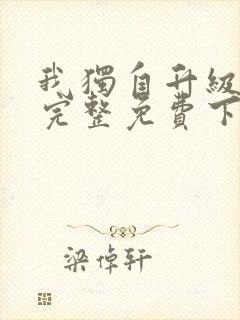 我獨自升級
完整免費下
梁倬軒